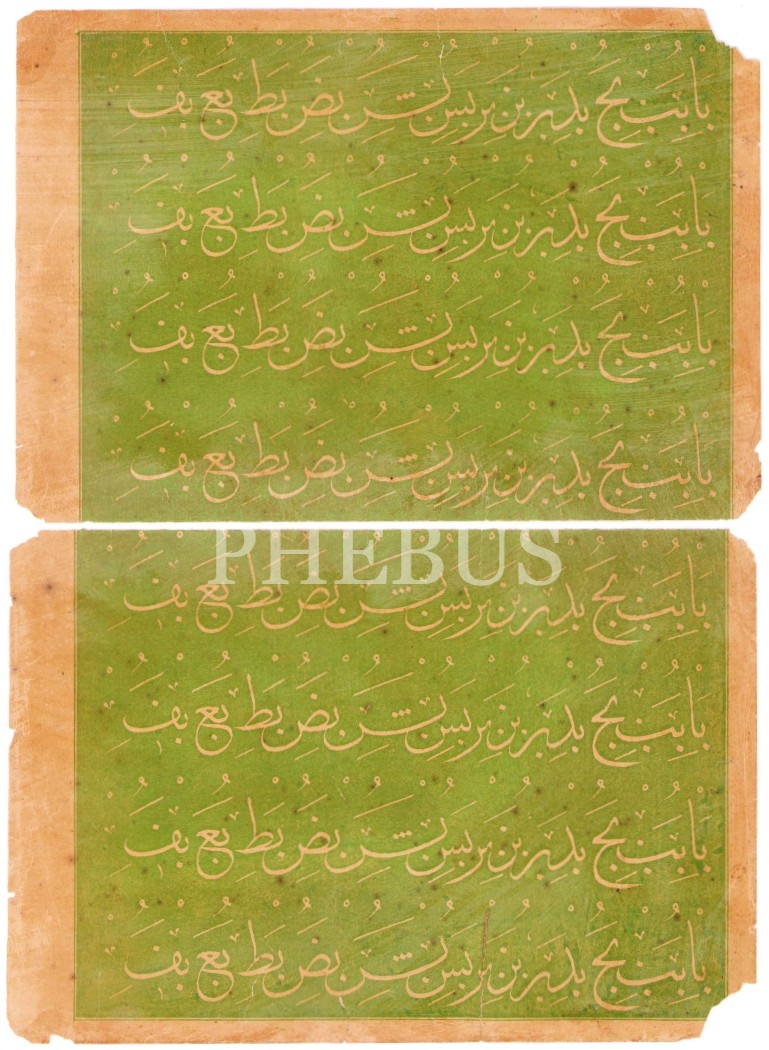 با بب بج بد بر بن بر بس بس بص بط بع بف
با بب بج بد بر بن بر بس بس بص بط بع بف
با بب بج بد بر بن بر بس بس بص بط بع بف
با بب بج بد بر بن بر بس بس بص بط بع بف
PHEBUS
با بب بج بد بر بن بر بس بس بص بط بع بف
با بب بج بد بر بن بر بس بس بص بط بع بف
با بب بج بد بر بن بر بس بس بص بط بع بف
با بب بج بد بر بن بر بس بس بص بط بع بف